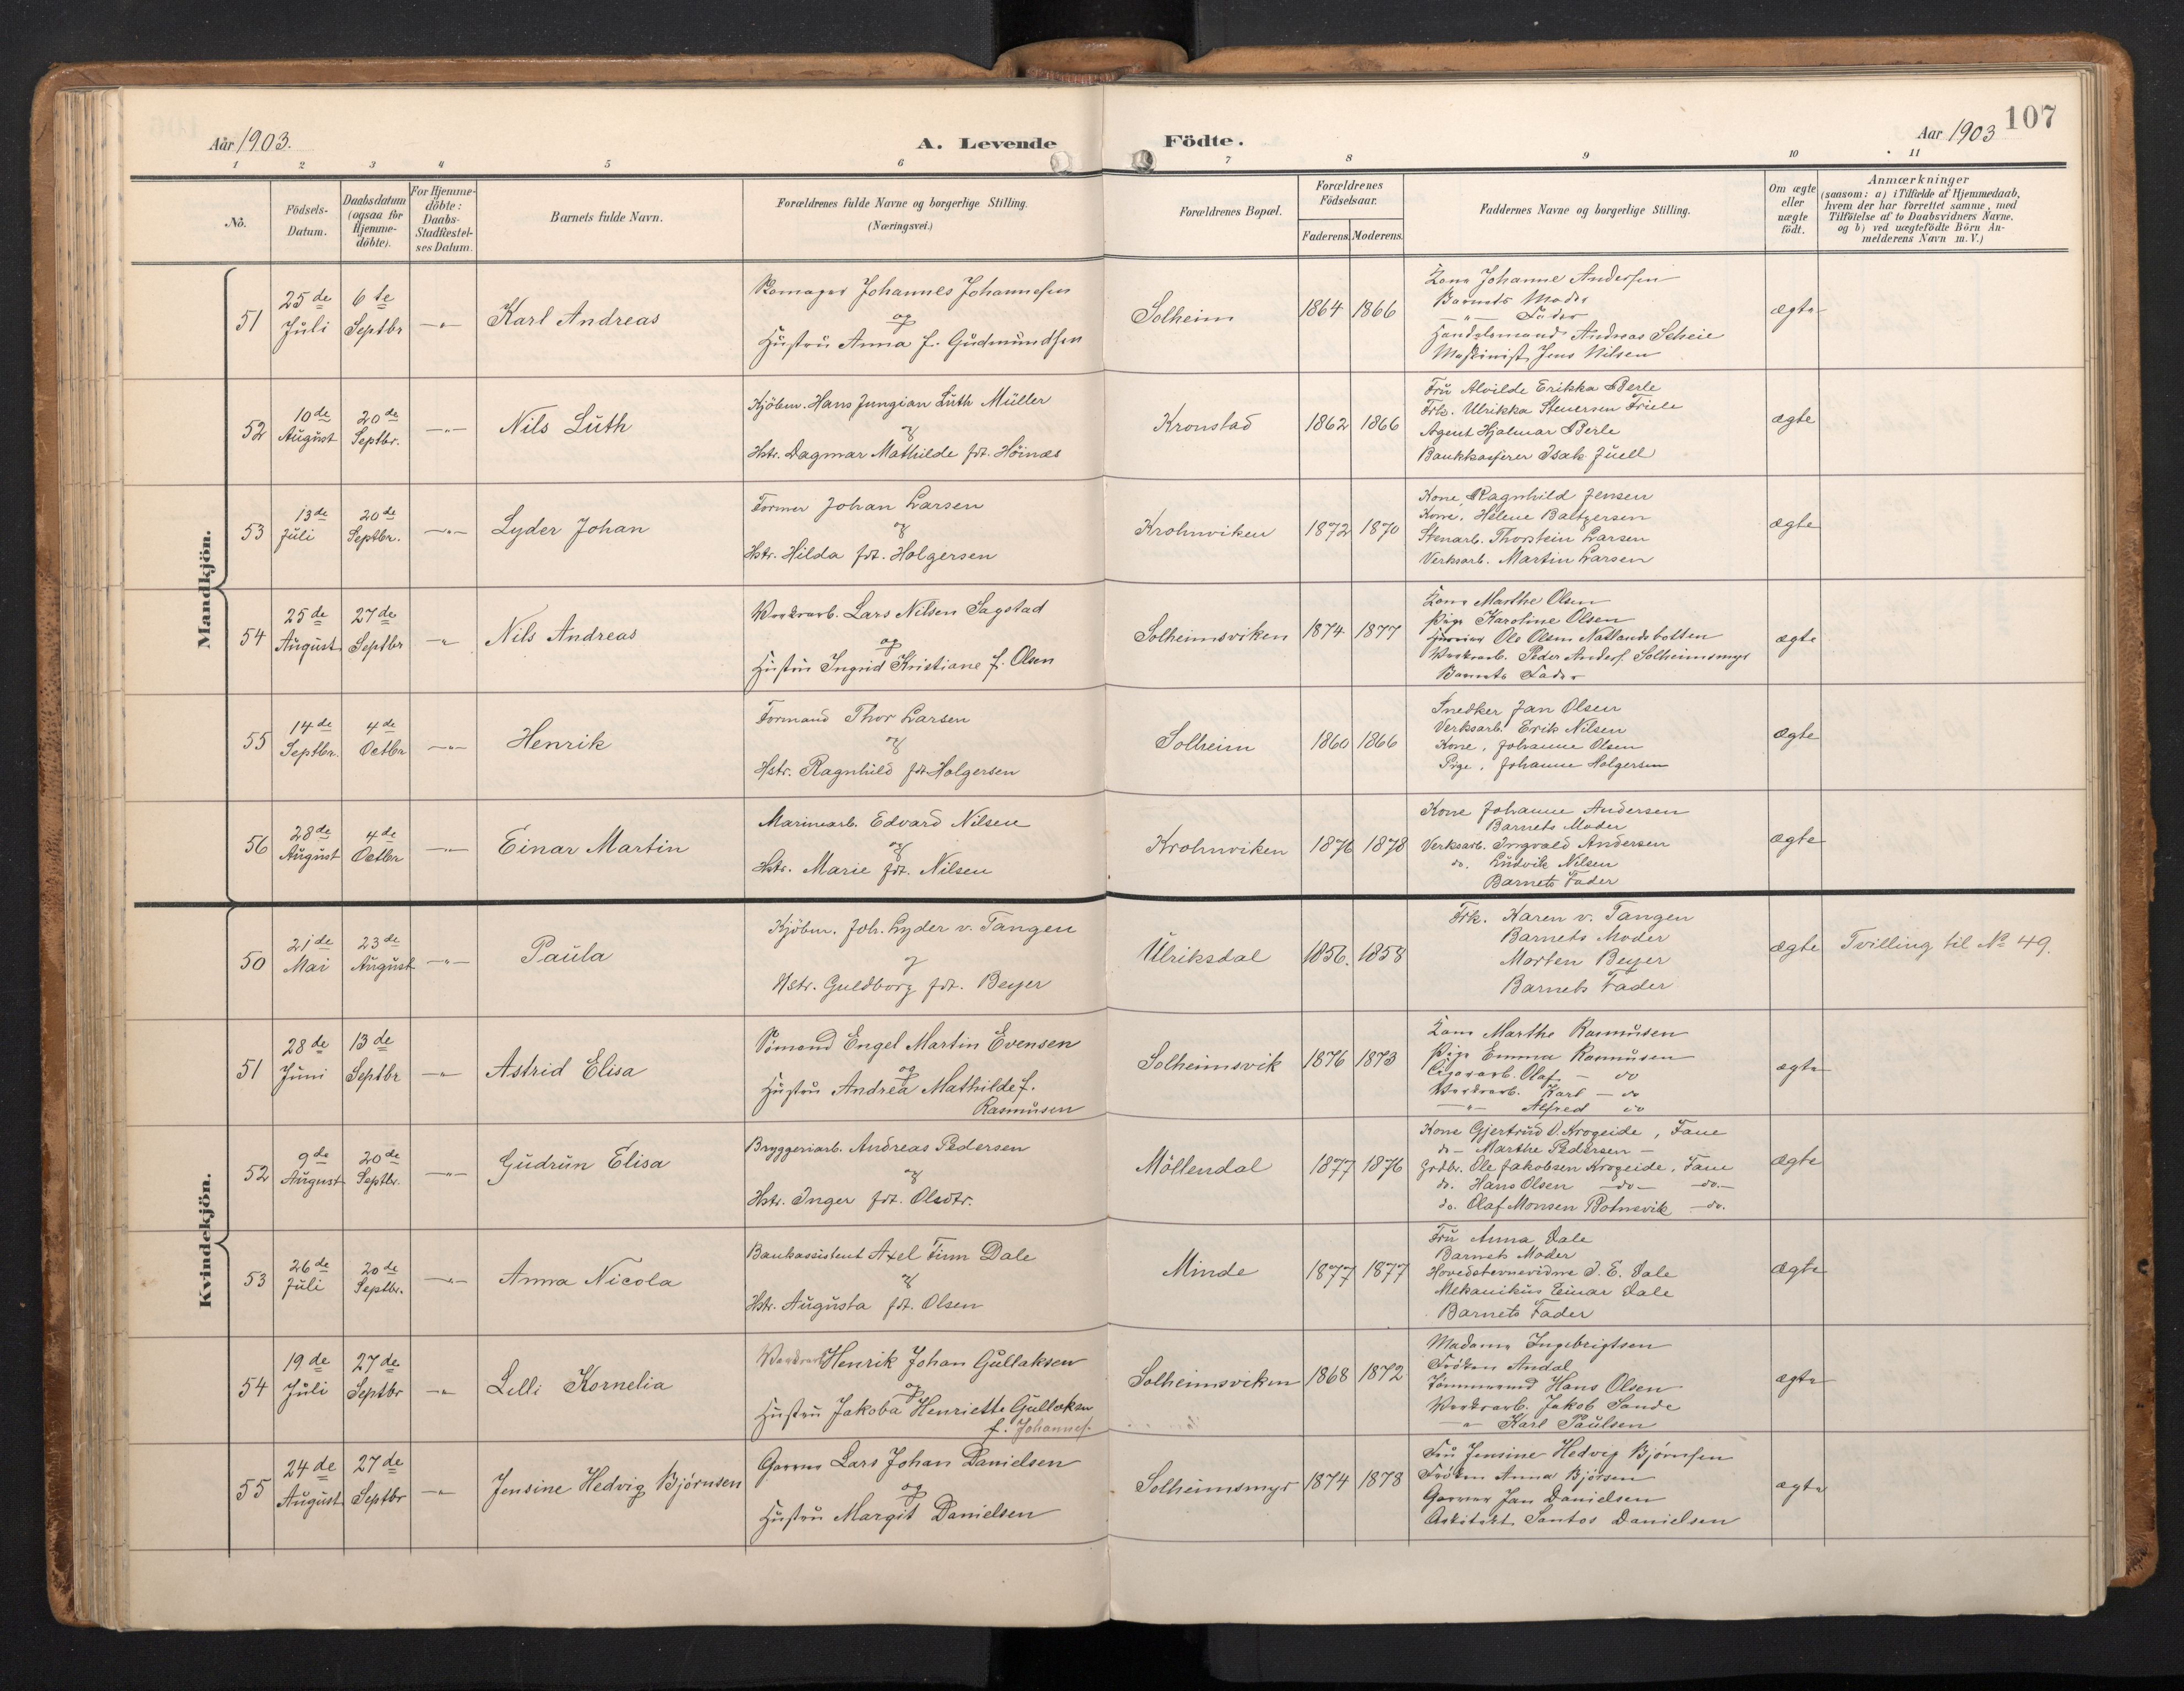 107
Aar 1903.
A. Levende Födte.
Aar 1903
1 2 3 4 5 6 7 8 9 10 11
No.
Födsels-Datum.
Daabsdatum (ogsaa for Hjemmedöbte).
For Hjemmedöbte: Daabs-Stadfæstelses Datum.
Barnets fulde Navn.
Forældrenes fulde Navne og borgerlige Stilling. (Næringsvei.)
Forældrenes Bopæl.
Forældrenes Födselsaar.
Faderens. Moderens.
Faddernes Navne og borgerlige Stilling.
Om ægte eller uægte födt.
Anmærkninger (saasom: a) i Tilfælde af Hjemmedaab, hvem der har forrettet samme, med Tilföielse af to Daabsvidners Navne. og b) ved uægtefödte Börn Anmelderens Navn m. V.)
Mandkjön.
51 25de Juli 6te Septbr —"— Karl Andreas
Skomager Johannes Johannesen
og
Hustru Anna f. Gudmundsen
Solheim 1864 1866
Kone Johanne Andersen
Barnets Moder
—"— Fader
Handelsmand Andreas Scheie
Maskinist Jens Nilsen
ægte
52 10de August 20de Septbr. —"— Nils Lüth
Kjöbm. Hans Jungian Lüth Müller
og
Hstr. Dagmar Mathilde fdt. Höinæs
Kronstad 1862 1866
Frü Alvilde Erikka Perle
Frk. Ulrikka Stenersen Friele
Agent Hjalmar Perle
Bankkasserer Isak Juell
ægte
53 13de Juli 20de Septbr. —"— Lyder Johan
Former Johan Larsen
og
Hstr. Hilda fdt. Holgersen
Krohnviken 1872 1870
Kone, Ragnhild Jensen
Kone, Helene Baltzersen
Stenarb. Thorstein Larsen
Verksarb. Martin Larsen
ægte
54 25de August 27de Septbr —"— Nils Andreas
Værksarb. Lars Nilsen Sagstad
og
Hustru Ingrid Kristiane f. Olsen
Solheimsviken 1874 1877
Kone Marthe Olsen
Pige Karoline Olsen
Ole Olsen Natlandsbotten
Værksarb. Peder Anders. Solheimsmyr
Barnets Fader
ægte
55 14de Septbr. 4de Octbr —"— Henrik
Formand Thor Larsen
og
Hstr. Ragnhild fdt. Holgersen
Solheim 1860 1866
Snedker Jan Olsen
Verksarb. Erik Nilsen
Kone, Johanne Olsen
Pige, Johanne Holgersen
ægte
56 28de August 4de Octbr —"— Einar Martin
Marinearb. Edvard Nilsen
og
Hstr. Marie fdt. Nilsen
Krohnviken 1876 1878
Kone Johanne Andersen
Barnets Moder
Verksarb. Ingvald Andersen
do. Ludvik Nilsen
Barnets Fader
ægte
Kvindekjön.
50 21de Mai 23de August —"— Paula
Kjöbm. Joh. Lyder v. Tangen
og
Hstr. Guldborg fdt. Beyer
Ulriksdal 1856. 1858
Frk. Karen v. Tangen
Barnets Moder
Morten Beyer
Barnets Fader
ægte Tvilling til No 49.
51 28de Juni 13de Septbr —"— Astrid Elisa
Sömand Engel Martin Evensen
og
Hustru Andrea Mathilde f.
Rasmusen
Solheimsvik 1876 1873
Kone Marthe Rasmusen
Pige Emma Rasmusen
Cigararb. Olaf — do
Værksarb. Karl — do
—"— Alfred do
ægte
52 9de August 20de Septbr. —"— Gudrun Elisa
Bryggeriarb. Andreas Pedersen
og
Hstr. Inger fdt. Olsdtr.
Möllendal 1877 1876
Kone Gjertrud O. Krogeide, Fane
do — Marthe Pedersen —
Grdbr. Ole Jakobsen Krogeide, Fane
do. Hans Olsen —do— —do.—
do. Olaf Monsen Botnevik —do.
ægte
53 26de Juli 20de Septbr. —"— Anna Nicola
Bankassistent Axel Finn Dale
og
Hstr. Augusta fdt. Olsen
Minde 1877 1877
Frü Anna Dale
Barnets Moder
Hovedstevnevidne I. E. Dale
Mekanikus Einar Dale
Barnets Fader
ægte
54 19de Juli 27de Septbr —"— Lelli Kornelia
Værksarb Henrik Johan Gullaksen
og
Hustru Jakoba Henriette Gullaksen
f. Johannes.
Solheimsviken 1868 1872
Madame Ingebrigtsen
Fröken Andal
Tömmermand Hans Olsen
Værksarb. Jakob Sande
—"— Karl Paulsen
ægte
55 24de August 27de Septbr —"— Jensine Hedvig Björnsen
Garver Lars Johan Danielsen
og
Hustru Margit Danielsen
Solheimsmyr 1874 1878
Fru Jensine Hedvig Björnsen
Fröken Anna Björsen
Garver Jan Danielsen
Arkitekt Santos Danielsen
ægte